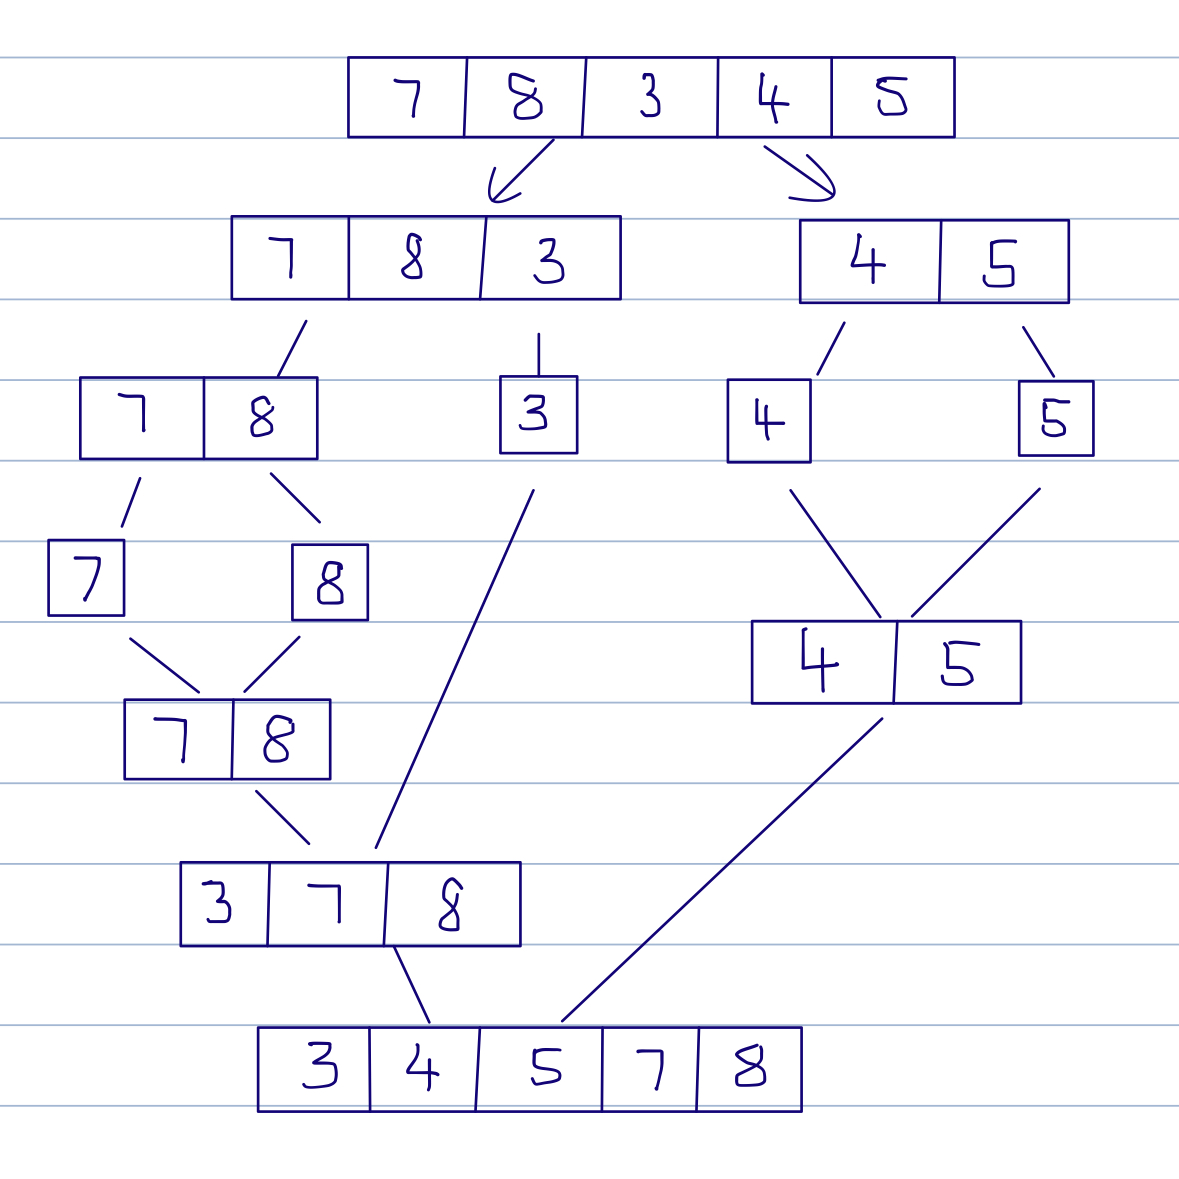 7 8 3 4 5
7 8 3 4 5
7 8 3 4 5
7 8
4 5
7 8
3 7 8
3 4 5 7 8